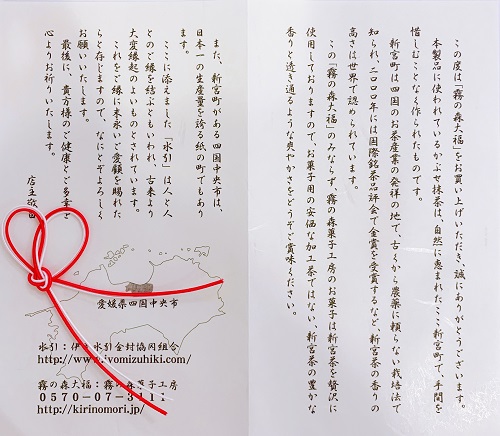 この度は「霧の森大福」をお買い上げいただき、誠にありがとうございます。
本製品に使われているかぶせ抹茶は、自然に恵まれたここ新宮町で、手間を
惜しむことなく作られたものです。
新宮町は四国のお茶産業の発祥の地で、古くから農薬に頼らない栽培法で
知られ、二〇〇〇年には国際銘茶品評会で金賞を受賞するなど、新宮茶の香りの
高さは世界で認められています。
この「霧の森大福」のみならず、霧の森菓子工房のお菓子は新宮茶を贅沢に
使用しておりますので、お菓子用の安価な加工茶ではない、新宮茶の豊かな
香りと透き通るような爽やかさをどうぞご賞味ください。
また、新宮町がある四国中央市は、
日本一の生産量を誇る紙の町でもあり
ます。
ここに添えました「水引」は人と人
とのご縁を結ぶともいわれ、古来より
大変縁起のよいものとされています。
これをご縁に末永いご愛顧を賜れた
らと存じますので、なにとぞよろしく
お願いいたします。
最後に、貴方様のご健康とご多幸を
心よりお祈りいたします。
店主敬白
愛媛県四国中央市
水引：伊予水引金封協同組合
http://www.iyomizuhiki.com/
霧の森大福：霧の森菓子工房
0570-07-3111
http://kirinomori.jp/